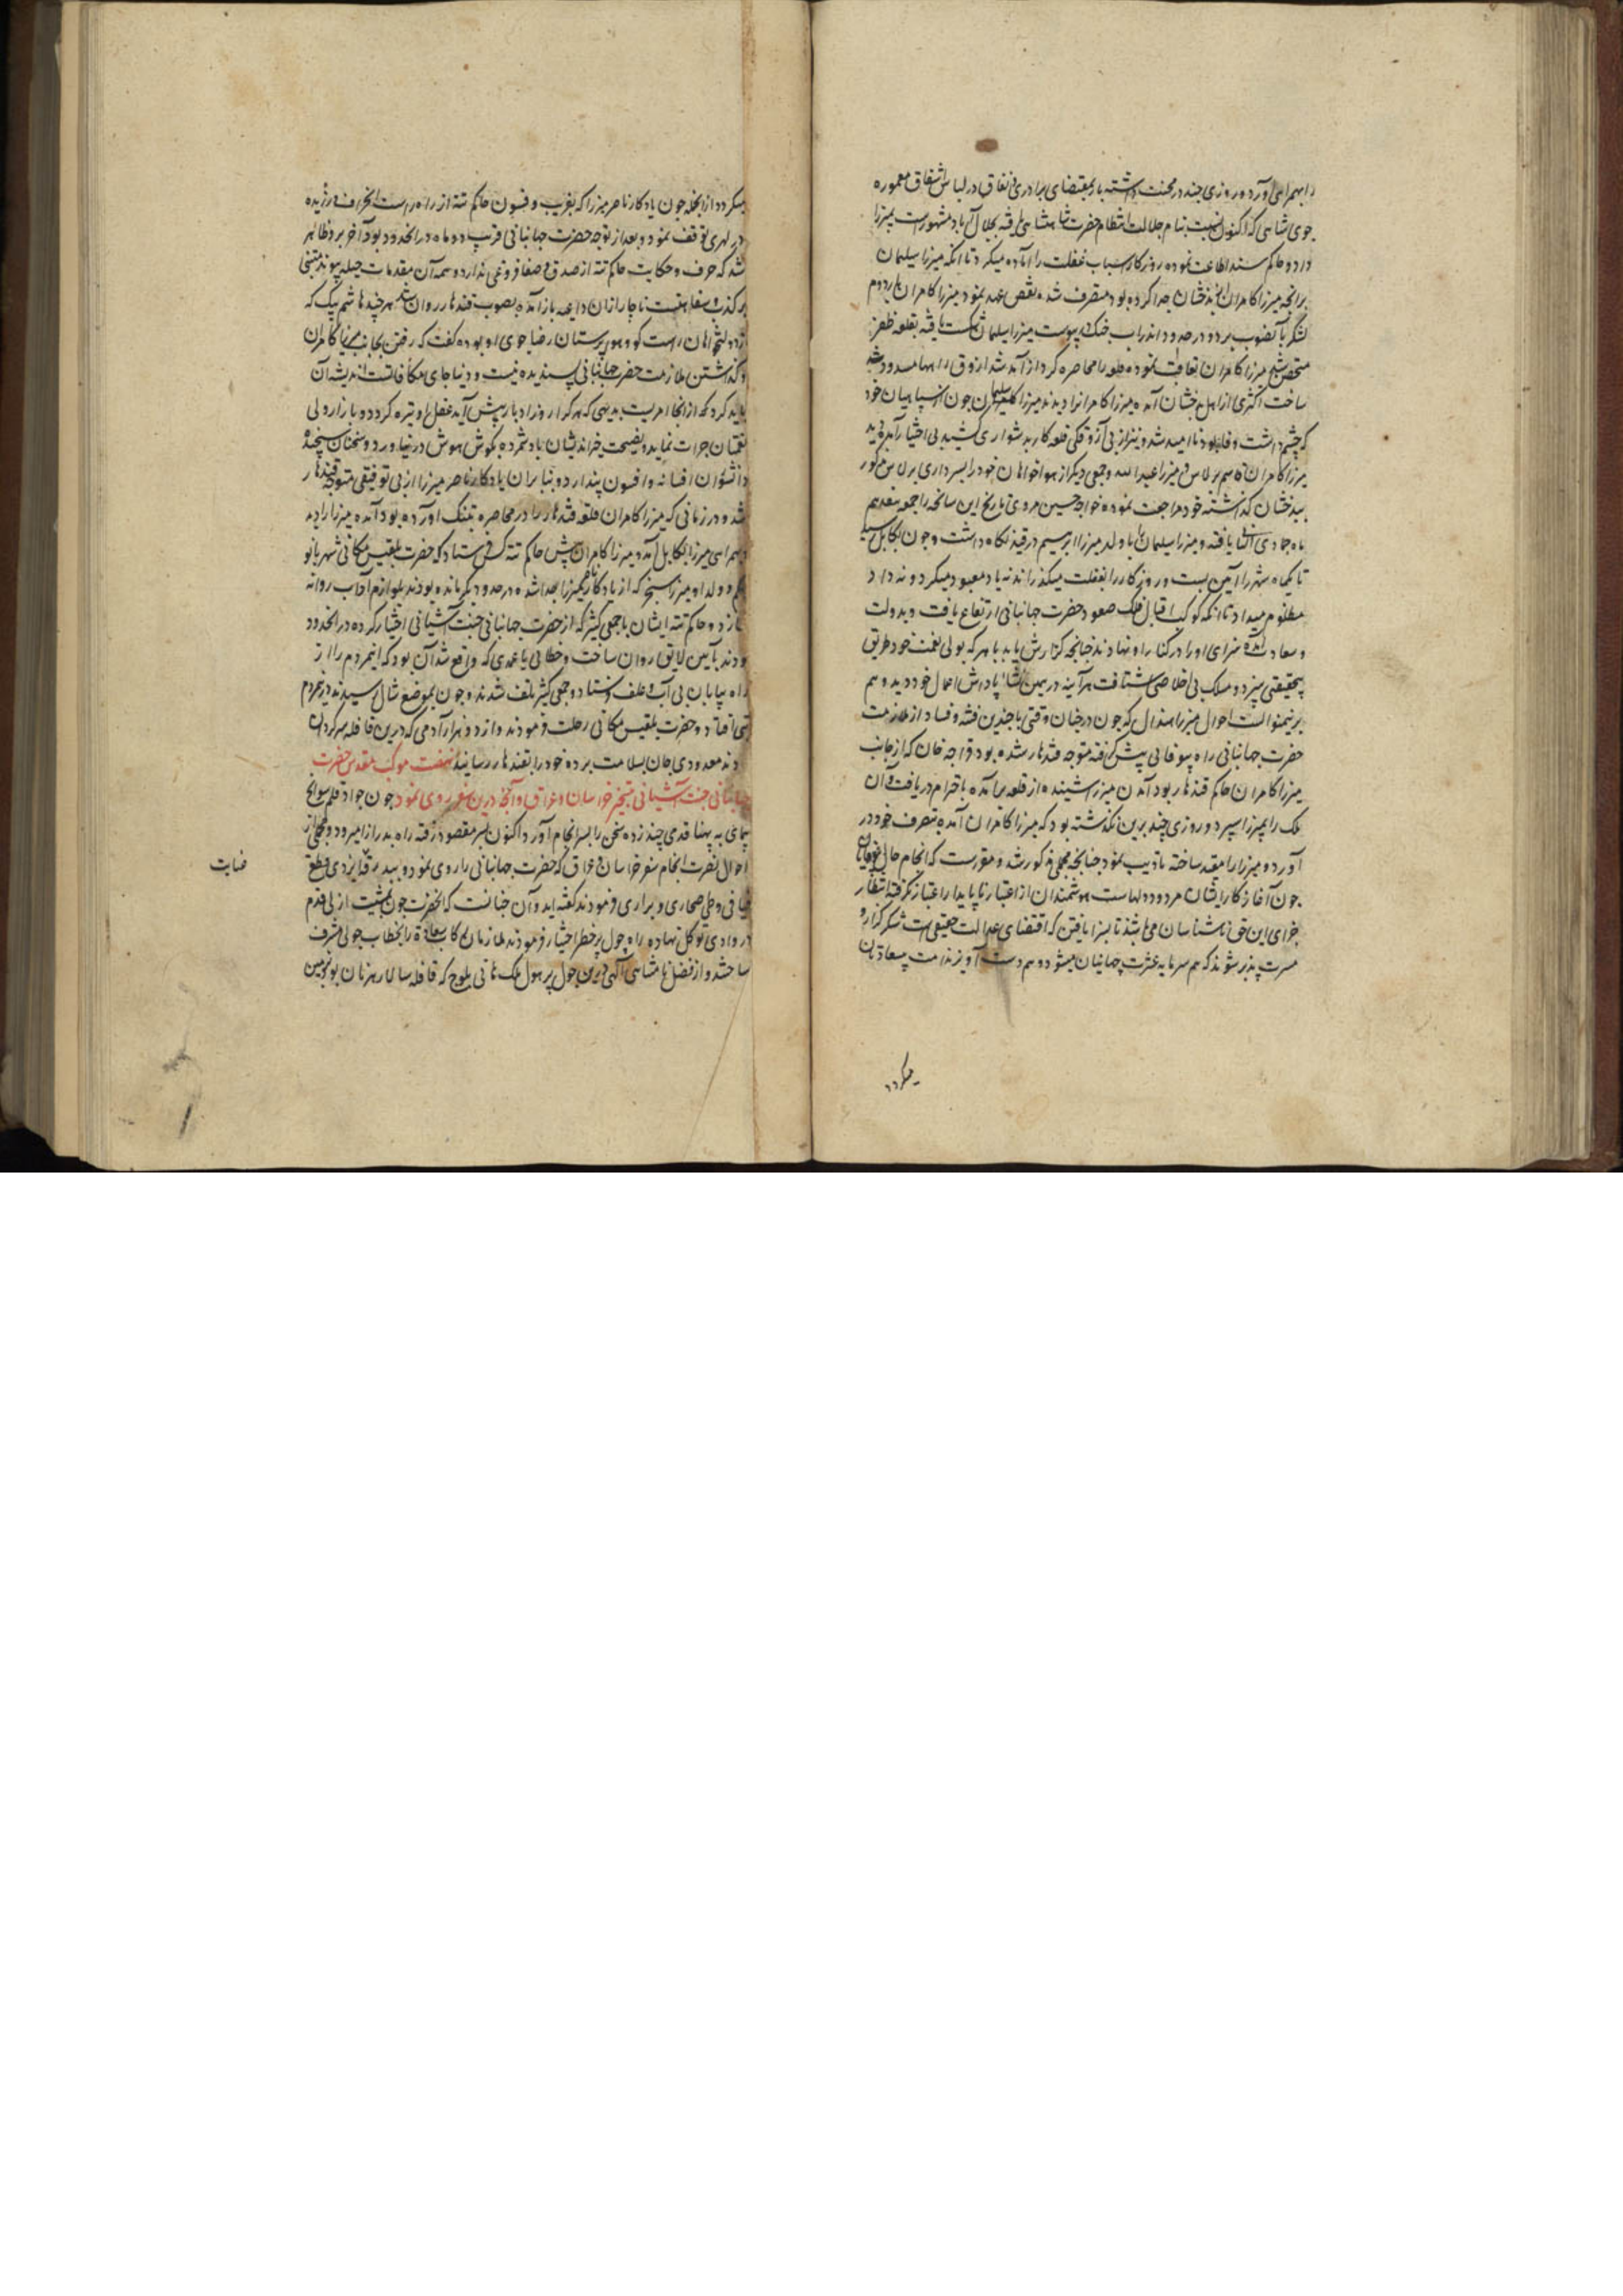 را بهمراهی آورد و روزی چند در محنت داشته باز بمقتضای برادری نفاق در لباس اشفاق معموره
جوی شاهی که اکنون بنسبت بنام جلالت انتظام حضرت شاهنشاهی بجلال آباد مشهورست بمیرزا
داد و حاکم سند اطاعت نموده روزگار اسباب غفلت را آماده میکرد تا آنکه میرزا سلیمان
برانچه میرزا کامران از بدخشان جدا کرده بود متصرف شده نقض عهد نمود میرزا کامران بار دوم
لشکر بآنصوب برد و در حدود اندراب جنگ پیوست میرزا سلیمان شکست یافته بقلعه ظفر
متحصن شد میرزا کامران تعاقب نموده قلعه را محاصره کرد از آمد شد آذوق راهها مسدود
ساخت اکثری از اهل بدخشان آمده میرزا کامرانرا دیدند میرزا سلیمان چون از سپاهیان خود
که چشم داشت وفا بود ناامید شد و نیز از بی آزوقگی قلعه کار بدشواری کشید بی اختیار آمده دید
میرزا کامران قاسم برلاس و میرزا عبدالله و جمعی دیگر از هواخواهان خود را بسرداری برلاس مذکور
ببدخشان گذاشته خود مراجعت نموده خواجه حسین مروی تاریخ این سانحه را جمعه هفدهم
ماه جمادی الثانی یافته و میرزا سلیمان را با ولد میرزا ابرهیم در قید نگاه داشت و چون بکابل رسید
تا یکماه شهر را آیین بست و روزگار را بغفلت میگذراند نه یاد معبود میکرد و نه داد
مظلوم میداد تا آنکه کوکب اقبال فلک صعود حضرت جهانبانی ارتفاع یافت و بدولت
و سعادت آمده سزای او را در کنار او نهادند چنانچه گزارش یابد بآ هر که بولی نعمت خود طریق
بیحقیقتی سپرد و مسلک بی اخلاصی شتافت هرآینه درین نشا پاداش اعمال خود دید و هم
برینمنوالست احوال میرزا هندال که چون در چنان وقتی با چندین فتنه و فساد از ملازمت
حضرت جهانبانی راه بیوفایی پیش گرفته متوجه قندهار شده بود قراجه خان که از جانب
میرزا کامران حاکم قندهار بود آمدن میرزا شنیده از قلعه برآمده باحترام دریافت و آن
ملک را بمیرزا سپرد و روزی چند برین نگذشته بود که میرزا کامران آمده بتصرف خود در
آورد و میرزا را مقید ساخته تادیب نمود چنانچه مجملی مذکور شد و مقررست که انجام حال
چون آغاز کار ایشان مردود دلهاست هوشمندان از اعتبار ناپایدار اعتبار نگرفته انتظار
جزای این حق ناشناسان می باشند تا بسزا یافتن که اقتضای عدالت حقیقی است شکرگزار و
مسرت پذیر شوند که هم سرمایه عشرت جهانیان میشود و هم دست آویز ندامت بیسعادتان
میگردد
میگردد از انجمله چون یادگار ناصر میرزا که بفریب و فسون حاکم تته از راه راست انحراف ورزیده
در لهری توقف نمود و بعد از توجه حضرت جهانبانی قریب دو ماه در انحدود بود آخر برو ظاهر
شد که حرف و حکایت حاکم تته از صدق و صفا فروغی ندارد و همه آن مقدمات حیله پیوند مبتنی
بر کذب و سفاهتست ناچار از ان داعیه باز آمده بصوب قندهار روان شد هر چند هاشم بیک که
از دولتخواهان راست گو و هواپرستان رضا جوی او بوده گفت که رفتن بجانب میرزا کامران
و گذاشتن ملازمت حضرت جهانبانی پسندیده نیست و دنیا جای مکافاتست اندیشه آن
باید کرد که از انجا امریست بدیهی که هر کرا روز ادبار پیش آید عقل او تیره گردد و باز ارولی
نعمتان جرات نماید و نصیحت خیراندیشان باد شمرده بگوش هوش درنیاورد و سخنان سنجیده
دانشوران افسانه و افسون پندارد بنابران یادگار ناصر میرزا از بی توفیقی متوجه قندهار
شد و در زمانی که میرزا کامران قلعه قندهار را در محاصره تنگ آورده بود آمده میرزا را دید
و بهمراهی میرزا بکابل آمد و میرزا کامران پیش حاکم تته کس فرستاد که حضرت بلقیس مکانی شهربانو
بیگم و ولد او میرزا سنجر که از یادگار ناصر میرزا جدا شده در حدود بکر مانده بودند بلوازم آداب روانه
سازد و حاکم تته ایشان با جمعی کثیر که از حضرت جهانبانی جنت آشیانی اختیار کرده در انحدود
بودند بآیین لایق روان ساخت و خطایی یا عمدی که واقع شد آن بود که اینمردم را از
راه بیابان بی آب و علف فرستاد و جمعی کثیر تلف شدند و چون بموضع شال رسیدند در مردم
تپی افتاد و حضرت بلقیس مکانی رحلت فرمودند و از دو هزار آدمی که درین قافله سرگردان
بودند معدودی جان بسلامت برده خود را بقندهار رسانیدند نهضت موکب مقدس حضرت
جهانبانی جنت آشیانی بتسخیر خراسان و عراق و آنچه درین سفر روی نمود چون جواد قلم سوانح
پیمای به پهنا قدمی چند زده سخن را بسرانجام آورد اکنون بسر مقصود رفته راه بدرازا میرود و مجملی از
احوال نصرت انجام سفر خراسان و عراق که حضرت جهانبانی را روی نمود و ببدرقه ایزدی قطع
فیافی و طی صحاری و براری فرمودند گفته اید و آن چنانست که آنحضرت چون بمشیت ازلی قدم
در وادی توکل نهاده راه چول پر خطر اختیار فرمودند ملازمان رکاب سعادت را بخطاب چولی مشرف
ساختند و از فضل نامتناهی الهی درین چول پر هول ملک هاتی بلوچ که قافله سالار رهزنان بود